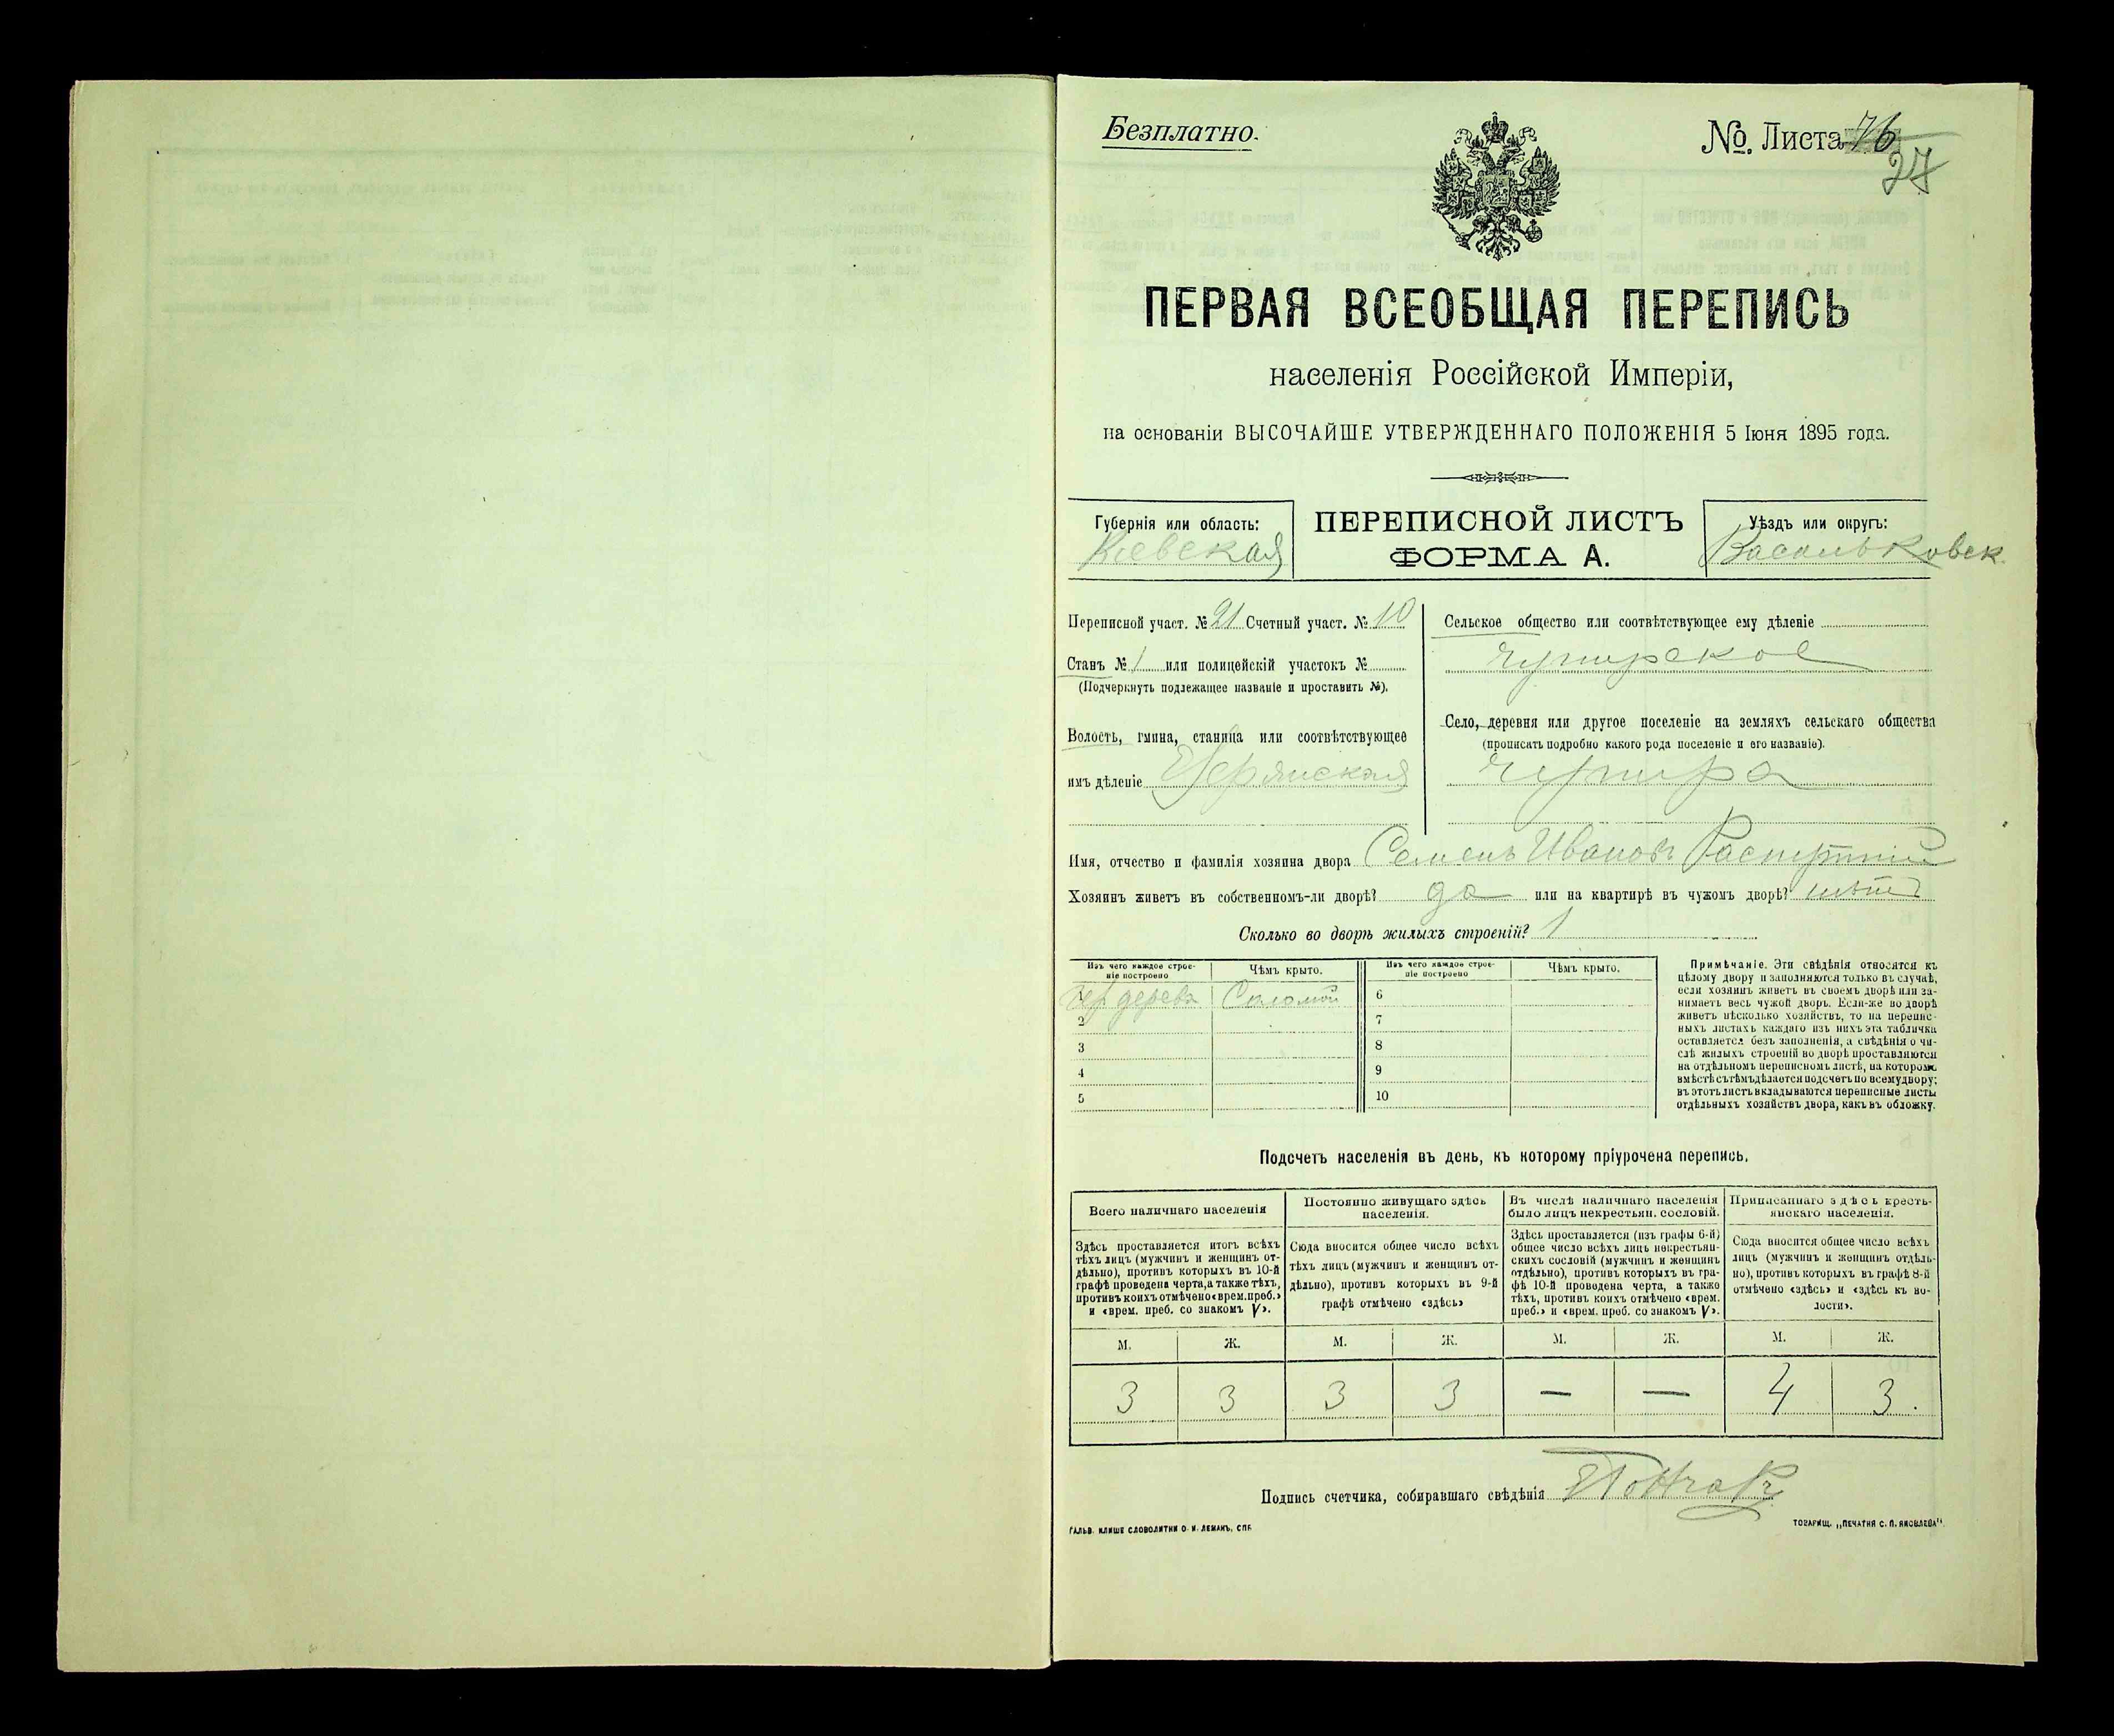 Безплатно.
№. Листа 76
27
ПЕРВАЯ ВСЕОБЩАЯ ПЕРЕПИСЬ
населенія Россійской Имперіи,
на основаніи ВЫСОЧАЙШЕ УТВЕРЖДЕННАГО ПОЛОЖЕНІЯ 5 Іюня 1895 года.
Губернія или область:
Кіевская
ПЕРЕПИСНОЙ ЛИСТЪ
ФОРМА А.
Уѣздъ или округъ:
Васильковск.
Переписной участ. № 21 Счетный участ. № 10
Станъ № 1 или полицейскій участокъ №
(Подчеркнуть подлежащее названіе и проставить №).
Волость, гмина, станица или соотвѣтствующее
имъ дѣленіе
Сельское общество или соотвѣтствующее ему дѣленіе
Чупирское
Село, деревня или другое поселеніе на земляхъ сельскаго общества
(прописать подробно какого рода поселеніе и его названіе).
Чупира
Имя, отчество и фамилія хозяина двора Семенъ Ивановъ
Хозяинъ живетъ въ собственномъ-ли дворѣ? да или на квартирѣ въ чужомъ дворѣ? нѣтъ
Сколько во дворѣ жилыхъ строеній? 1
Изъ чего каждое строе-
ніе построено
Чѣмъ крыто.
Изъ чего каждое строе-
ніе построено
Чѣмъ крыто.
1 дерева Соломой
2
3
4
5
6
7
8
9
10
Примѣчаніе. Эти свѣдѣнія относятся къ
цѣлому двору и заполняются только въ случаѣ,
если хозяинъ живетъ въ своемъ дворѣ или за-
нимаетъ весь чужой дворъ. Если-же во дворѣ
живетъ нѣсколько хозяйствъ, то на перепис-
ныхъ листахъ каждаго изъ нихъ эта табличка
оставляется безъ заполненія, а свѣдѣнія о чи-
слѣ жилыхъ строеній во дворѣ проставляются
на отдѣльномъ переписномъ листѣ, на которомъ
вмѣстѣ съ тѣмъ дѣлается подсчетъ по всему двору;
въ этотъ листъ вкладываются переписные листы
отдѣльныхъ хозяйствъ двора, какъ въ обложку.
Подсчетъ населенія въ день, къ которому пріурочена перепись.
Всего наличнаго населенія
Здѣсь проставляется итогъ всѣхъ
тѣхъ лицъ (мужчинъ и женщинъ от-
дѣльно), противъ которыхъ въ 10-й
графѣ проведена черта, а также тѣхъ,
противъ коихъ отмѣчено «врем. преб.»
и «врем. преб. со знакомъ V».
Постоянно живущаго здѣсь
населенія.
Сюда вносится общее число всѣхъ
тѣхъ лицъ (мужчинъ и женщинъ от-
дѣльно), противъ которыхъ въ 9-й
графѣ отмѣчено «здѣсь»
Въ числѣ наличнаго населенія
было лицъ некрестьян. сословій.
Здѣсь проставляется (изъ графы 6-й)
общее число всѣхъ лицъ некрестьян-
скихъ сословій (мужчинъ и женщинъ
отдѣльно), противъ которыхъ въ гра-
фѣ 10-й проведена черта, а также
тѣхъ, противъ коихъ отмѣчено «врем.
преб.» и «врем. преб. со знакомъ V».
Приписаннаго здѣсь кресть-
янскаго населенія.
Сюда вносится общее число всѣхъ
лицъ (мужчинъ и женщинъ отдѣль-
но), противъ которыхъ въ графѣ 8-й
отмѣчено «здѣсь» и «здѣсь къ во-
лости».
М. Ж. М. Ж. М. Ж. М. Ж.
3 3 3 3 — — 4 3.
Подпись счетчика, собиравшаго свѣдѣнія
ГАЛЬВ. КЛИШЕ СЛОВОЛИТНИ О. И. ЛЕМАНЪ, СПБ.
ТОВАРИЩ. „ПЕЧАТНЯ С. П. ЯКОВЛЕВА“.